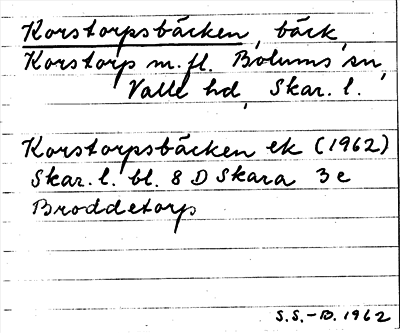 Korstorpsbäcken, bäck,
Korstorp m.fl. Bolums sn,
Valle hd, Skar. l.
Korstorpsbäcken ek (1962)
Skar. l. bl. 8 D Skara 3e
Broddetorp
S.S.-D. 1962